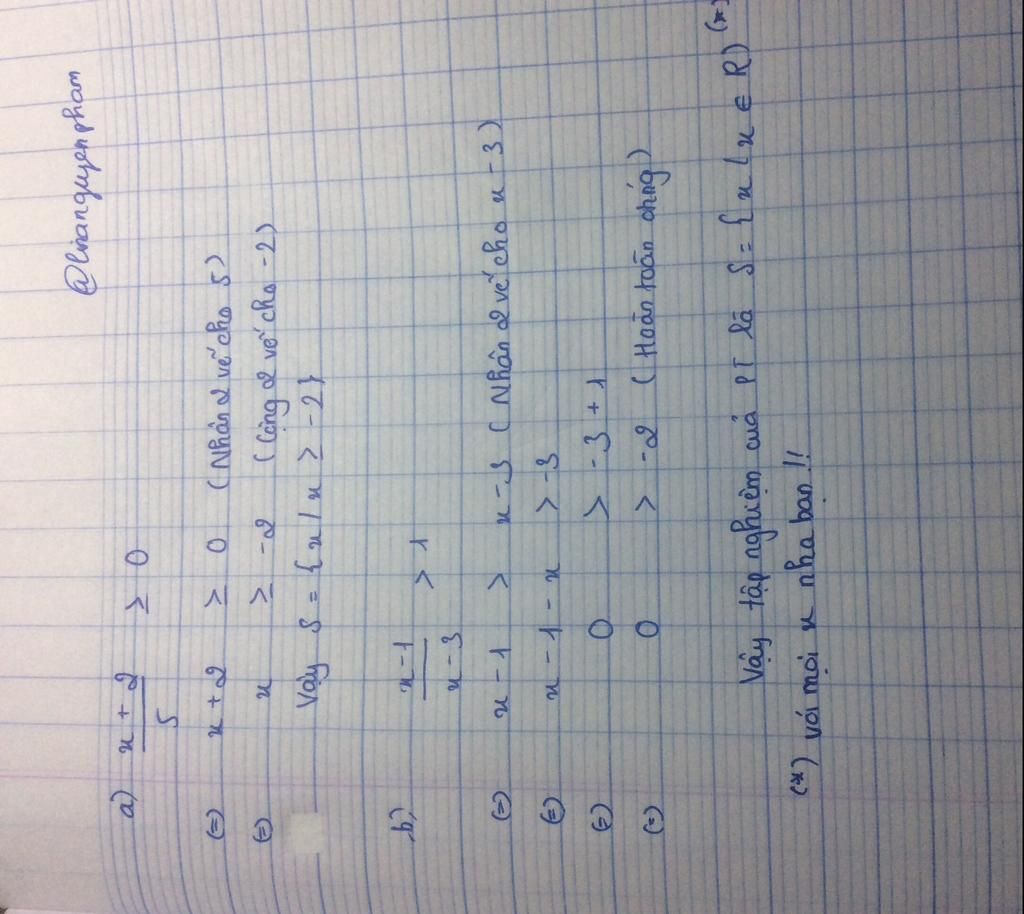 @linanguyenpham
a) x + 2 / 5 ≥ 0
(=) x + 2 ≥ 0 (Nhân 2 vế cho 5)
(=) x ≥ -2 (Cộng 2 vế cho -2)
Vậy S = { x / x ≥ -2 }
b) x - 1 / x - 3 > 1
(=) x - 1 > x - 3 (Nhân 2 vế cho x - 3)
(=) x - 1 - x > -3
(=) 0 > -3 + 1
(=) 0 > -2 (Hoàn toàn đúng)
Vậy tập nghiệm của PT là S = { x / x ∈ R) (*)
(*) với mọi x nha bạn!!